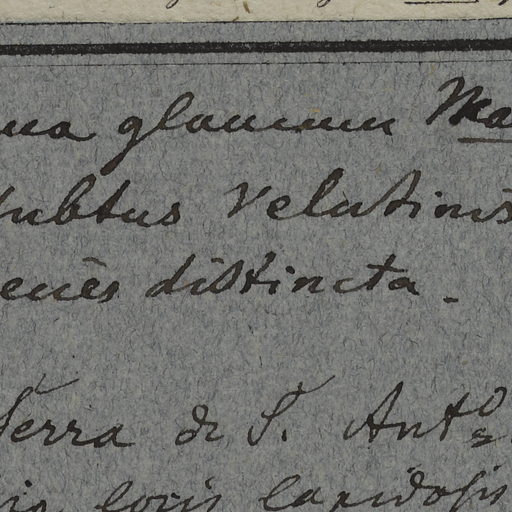 ma glaucum Ma
subtus velutinis
enēs distincta.
Serra de S. Antº
is locis lapidosis